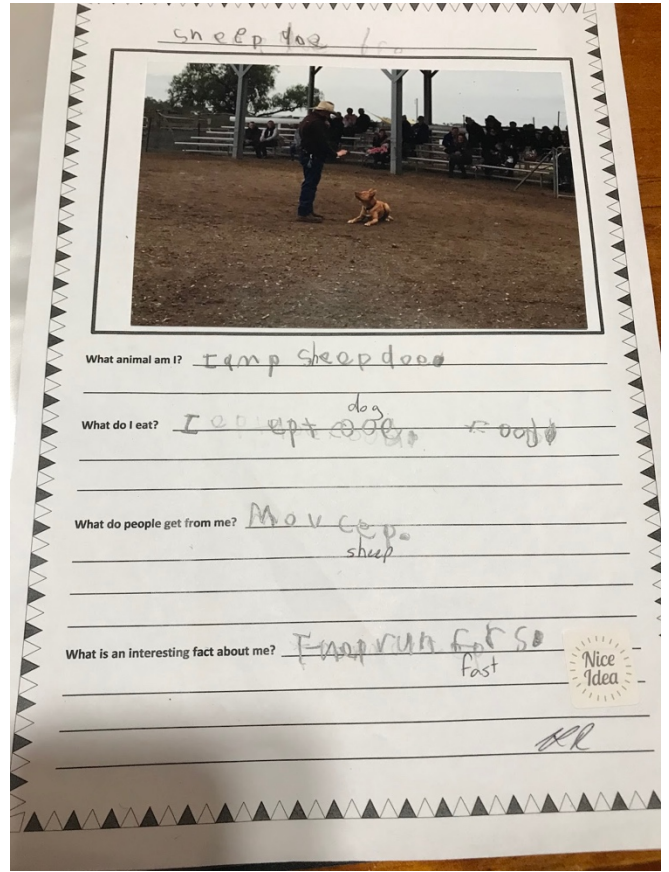 sheep doe
What animal am I? I amp sheep dooo
dog
What do I eat? I eat food
What do people get from me? Mov cep.
sheep
What is an interesting fact about me? run for so
fast
Nice
Idea